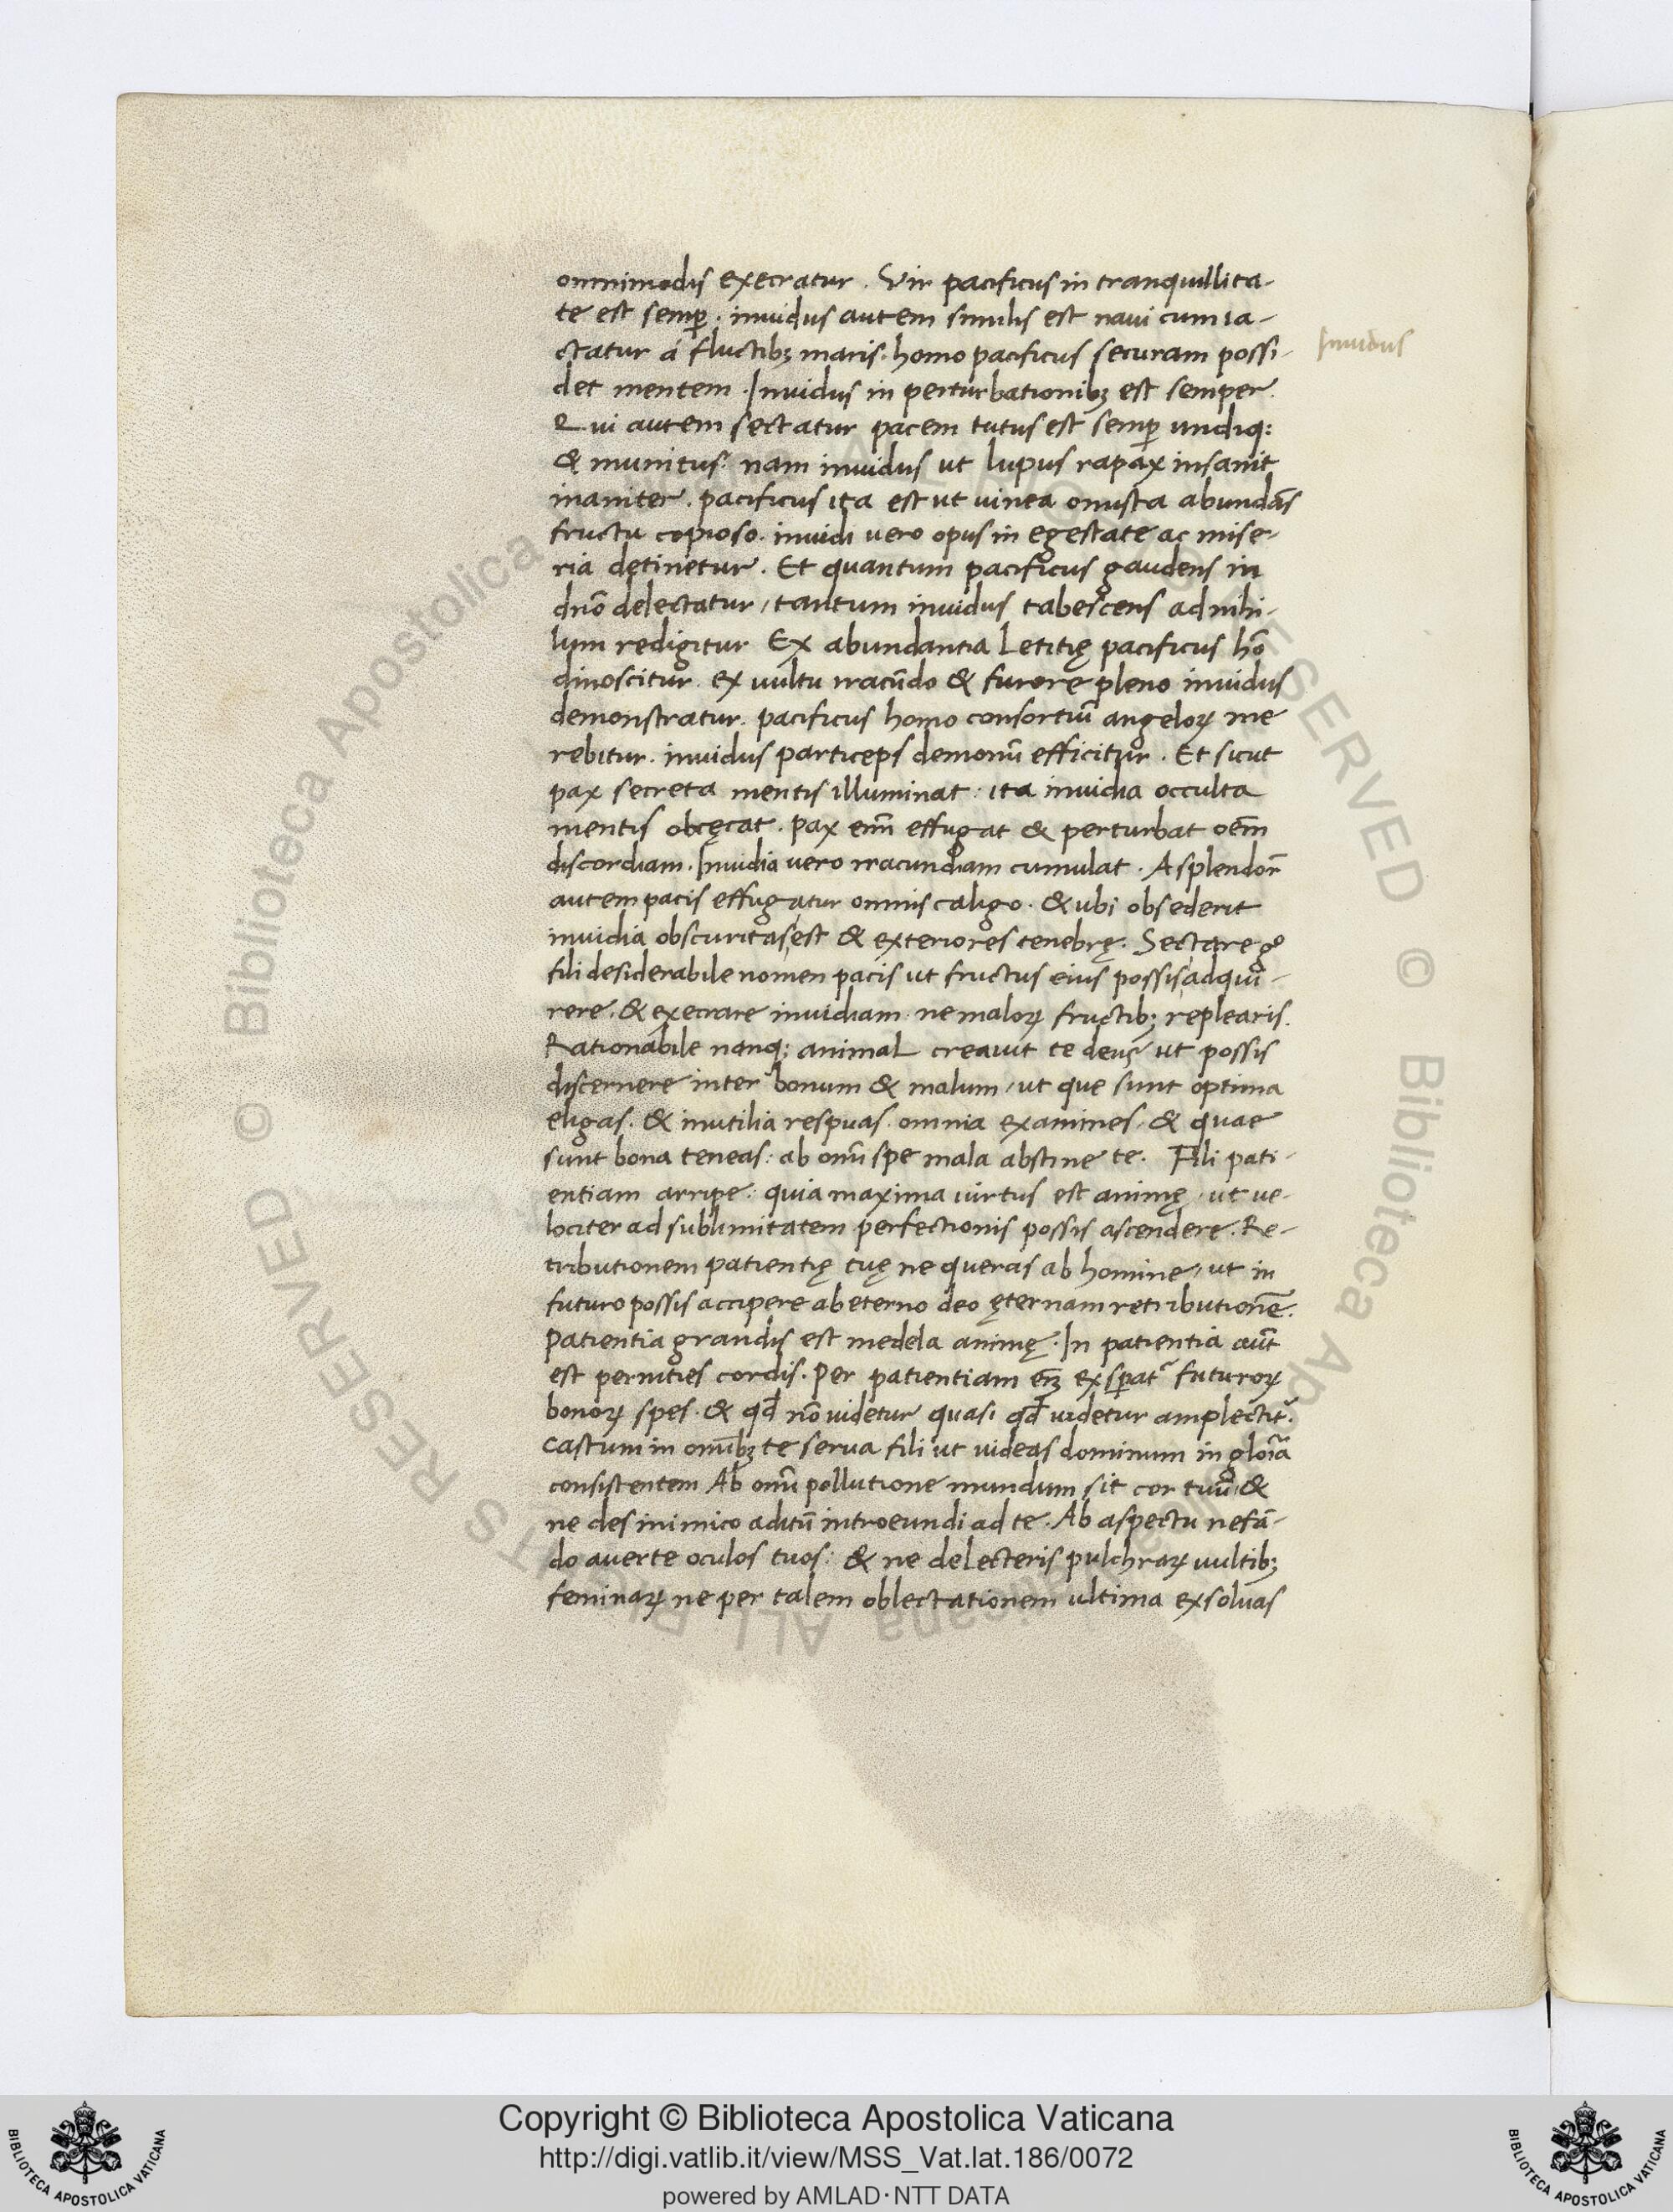 omnimodis execratur. Vir pacificus in tranquillita-
te est semp̱. inuidus autem similis est naui cum ia-
ctatur á fluctibꝫ maris. homo pacificus securam possi-
Inuidus
det mentem. Inuidus in perturbationibꝫ est semper.
Qui autem sectatur pacem tutus est semp̱ undiqꝫ
& munitus: nam inuidus ut lupus rapax insanit
inaniter. pacificus ita est ut uinea onusta abundãs
fructu copioso. inuidi uero opus in egestate ac mise-
ria detinetur. Et quantum pacificus gaudens in
dño delectatur, tantum inuidus tabescens ad nihi-
lum redigitur Ex abundantia letitię pacificus hõ
dinoscitur. ex uultu iracũdo & furore pleno inuidus
demonstratur. pacificus homo consortiũ angeloꝝ me
rebitur. inuidus particeps demonũ efficitur. Et sicut
pax secreta mentis illuminat: ita inuidia occulta
mentis obcęcat. pax enĩ effugat & perturbat oẽm
discordiam. Inuidia uero iracundiam cumulat. A splendoř
autem pacis effugatur omnis caligo. & ubi obsederit
inuidia obscuritas est & exteriores tenebrę. Sectare gͦ
fili desiderabile nomen pacis ut fructus eius possis adqui-
rere. & execrare inuidiam. ne maloꝝ fructibꝫ replearis.
Rationabile nanqꝫ animal creauit te deus ut possis
discernere inter bonum & malum, ut que sunt optima
eligas. & inutilia respuas. omnia examines. & quae
sunt bona teneas: ab omĩ spe mala abstine te. Fili pati-
entiam arripe: quia maxima uirtus est animę, ut ue-
lociter ad sublimitatem perfectionis possis ascendere. Re-
tributionem patientię tuę ne queras ab homine, ut in
futuro possis accipere ab eterno deo ęternam retributionẽ.
Patientia grandis est medela animę. In patientia aũt
est pernities cordis. Per patientiam eñꝫ exp̱at᷑ futuroꝝ
bonoꝝ spes. & qđ nõ uidetur quasi qđ uidetur amplectit᷑.
Castum in omĩbꝫ te serua fili ut uideas dominum in gloĩa
consistentem Ab omĩ pollutione mundum sit cor tuũ, &
ne des inimico aditũ introeundi ad te. Ab aspectu nefã-
do auerte oculos tuos: & ne delecteris pulchraꝝ uultibꝫ
feminaꝝ ne per talem oblectationem ultima exsoluas
Copyright © Biblioteca Apostolica Vaticana
http://digi.vatlib.it/view/MSS_Vat.lat.186/0072
powered by AMLAD·NTT DATA
BIBLIOTECA APOSTOLICA VATICANA
BIBLIOTECA APOSTOLICA VATICANA